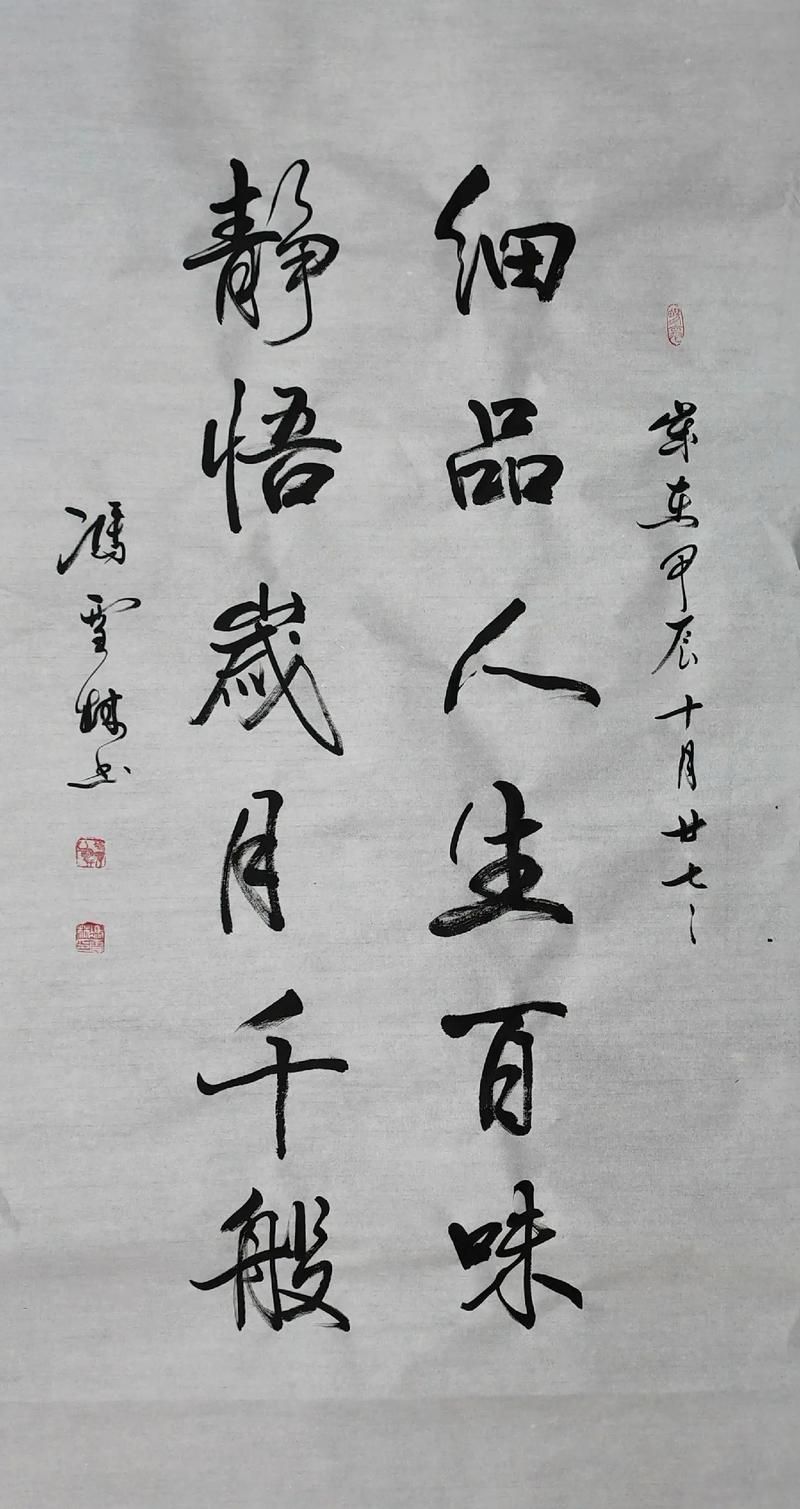 歲在甲辰十月廿七
细品人生百味
静悟歲月千般
馮雪林书